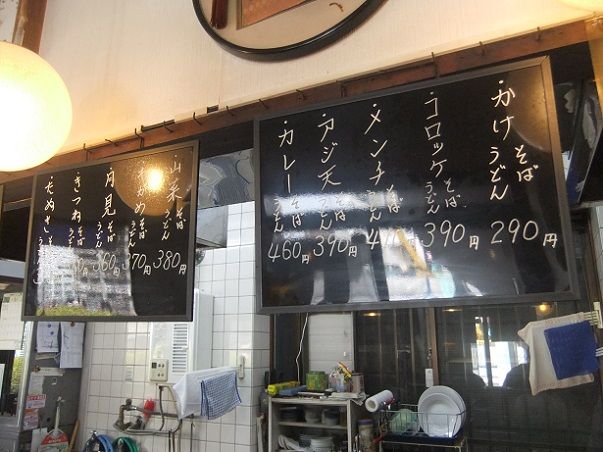 ・かけ そば うどん 290円
・コロッケ そば うどん 390円
・メンチ そば うどん 4 0円
・アジ天 そば うどん 390円
・カレー そば うどん 460円
・山菜 そば うどん 380円
・わかめ そば うどん 370円
・月見 そば うどん 360円
・きつね そば うどん
・たぬき そば うどん